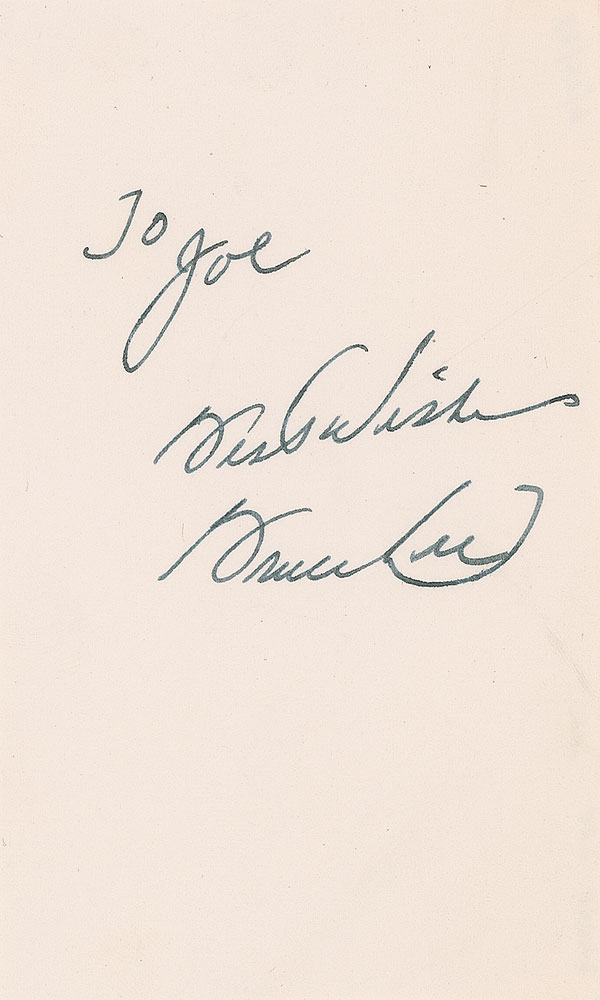 To Joe
Best Wishes
Bruce Lee